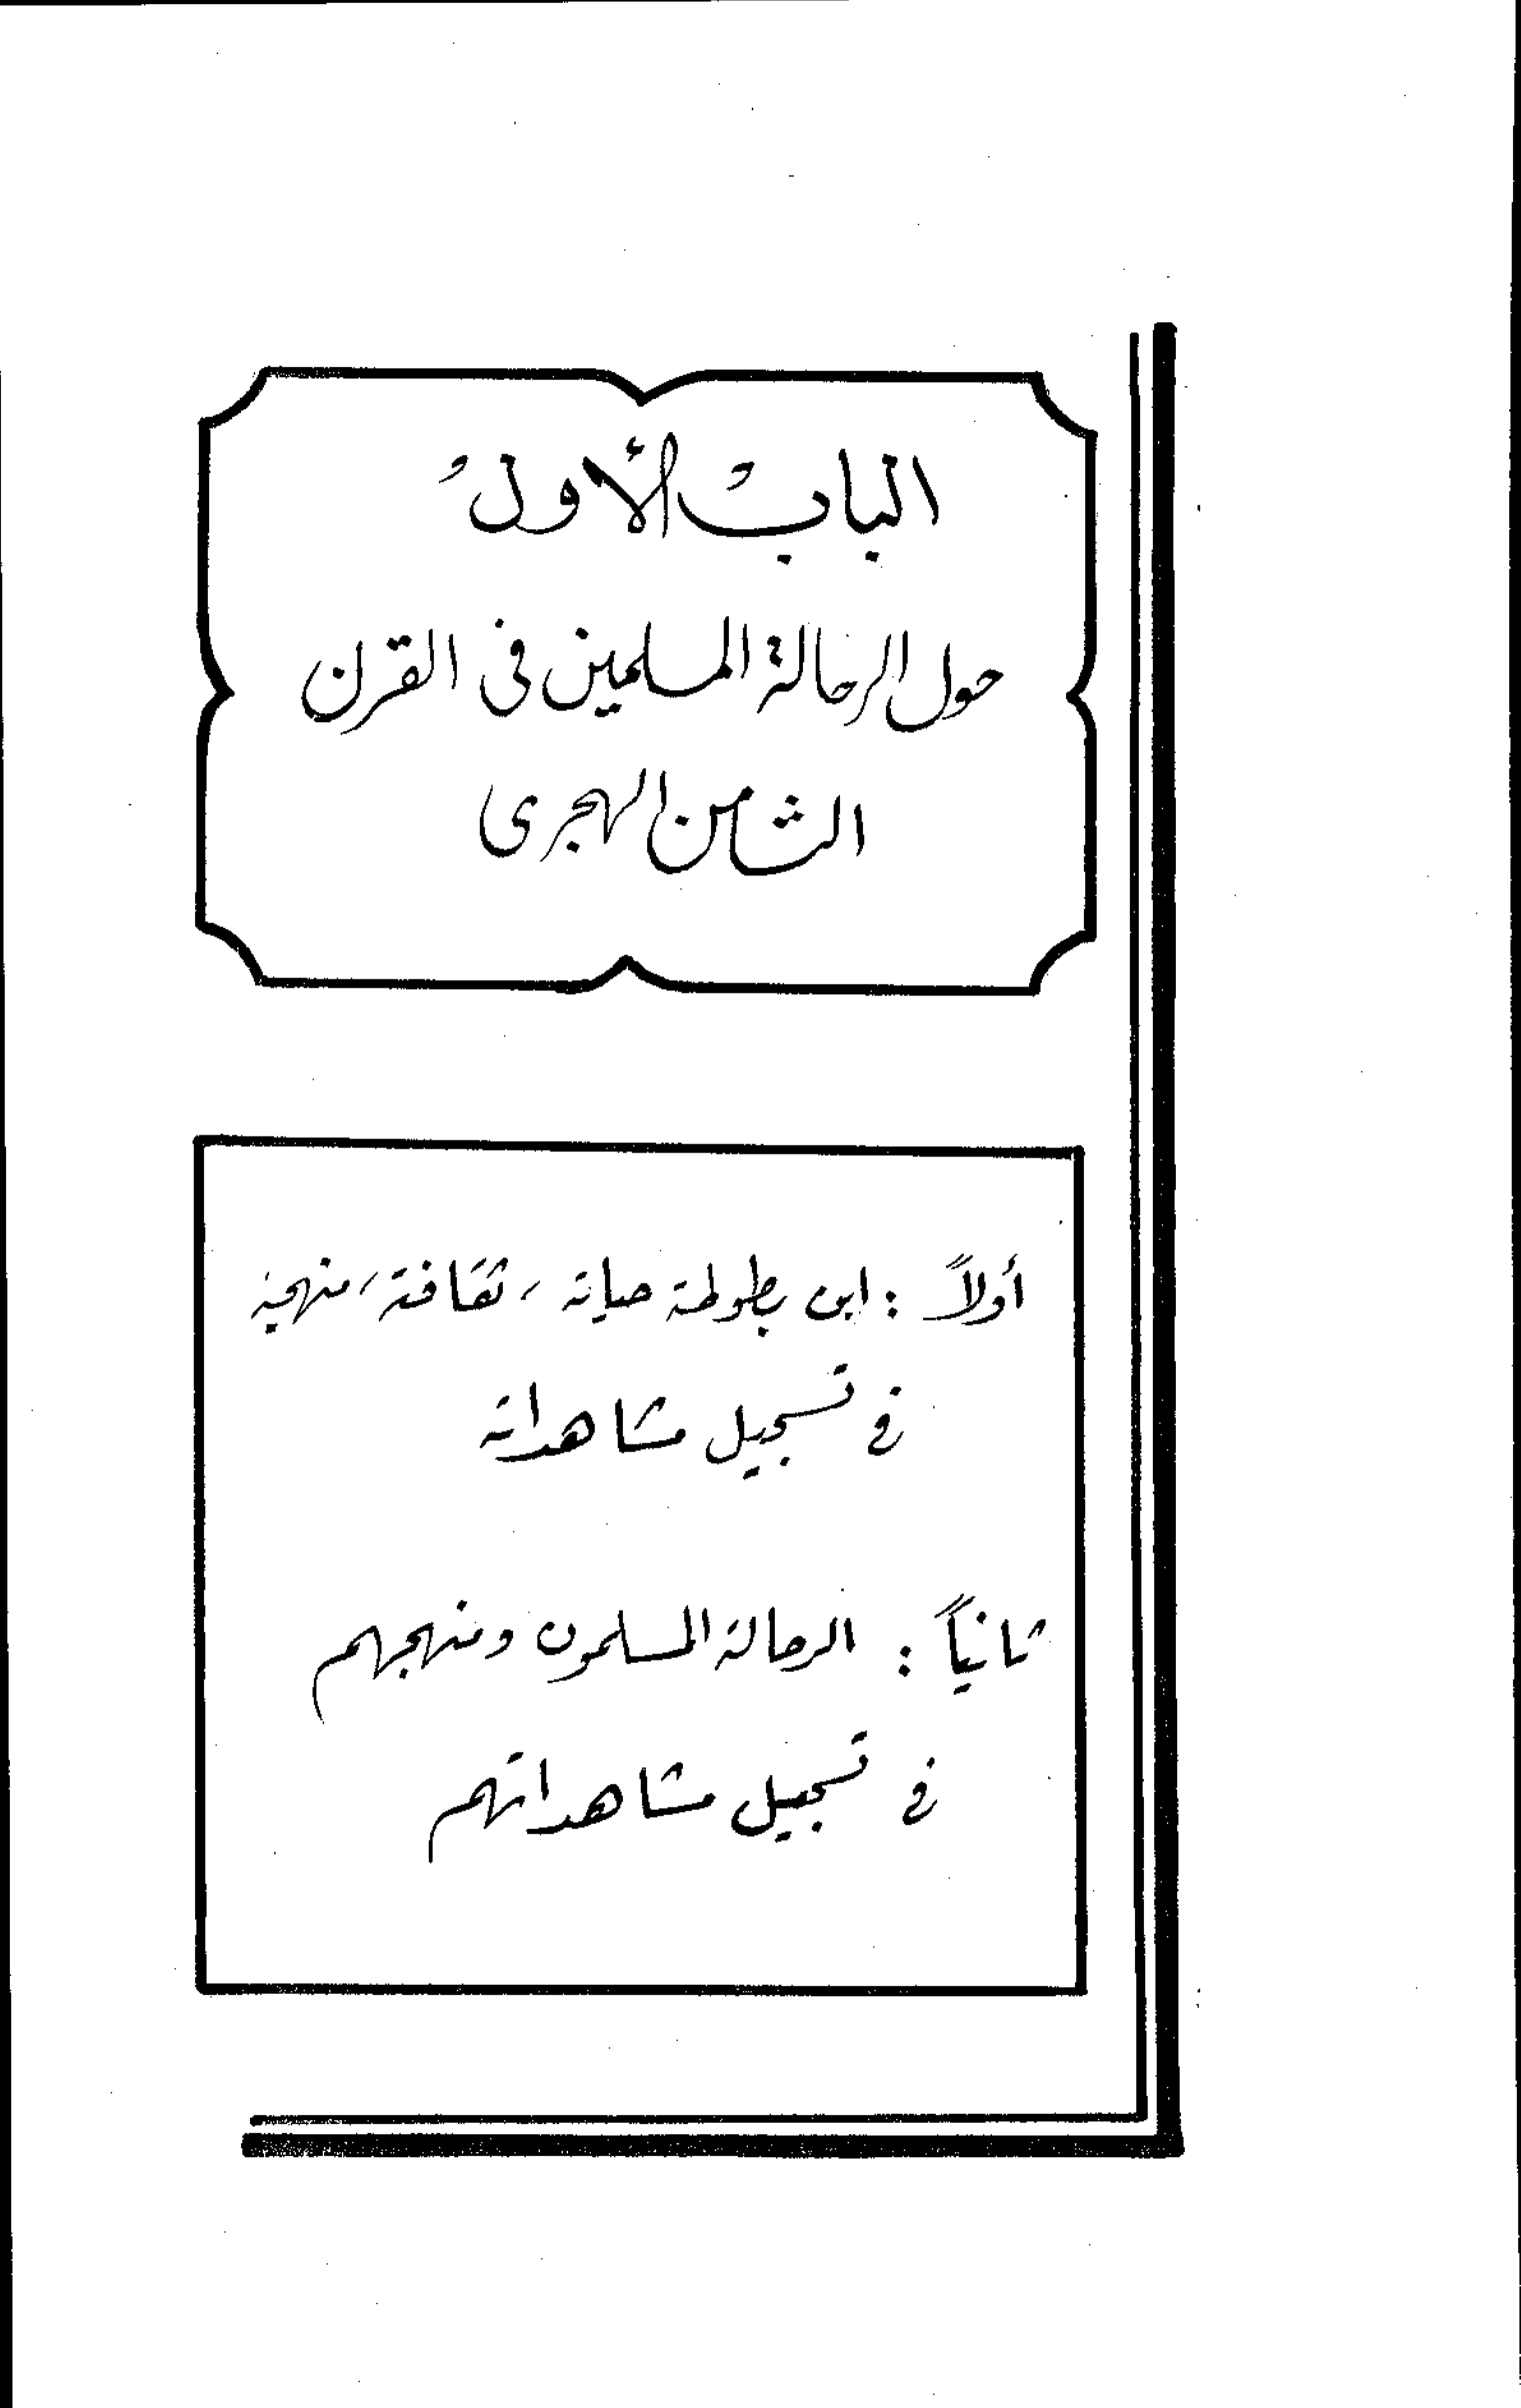 البابُ الأولُ
حول الرحالة المسلمين فى القرن
الثامن الهجرى
أولاً : ابن بطوطة حياته ، ثقافته ، منهجه
فى تسجيل مشاهداته
ثانياً : الرحالة المسلمون ومنهجهم
فى تسجيل مشاهداتهم